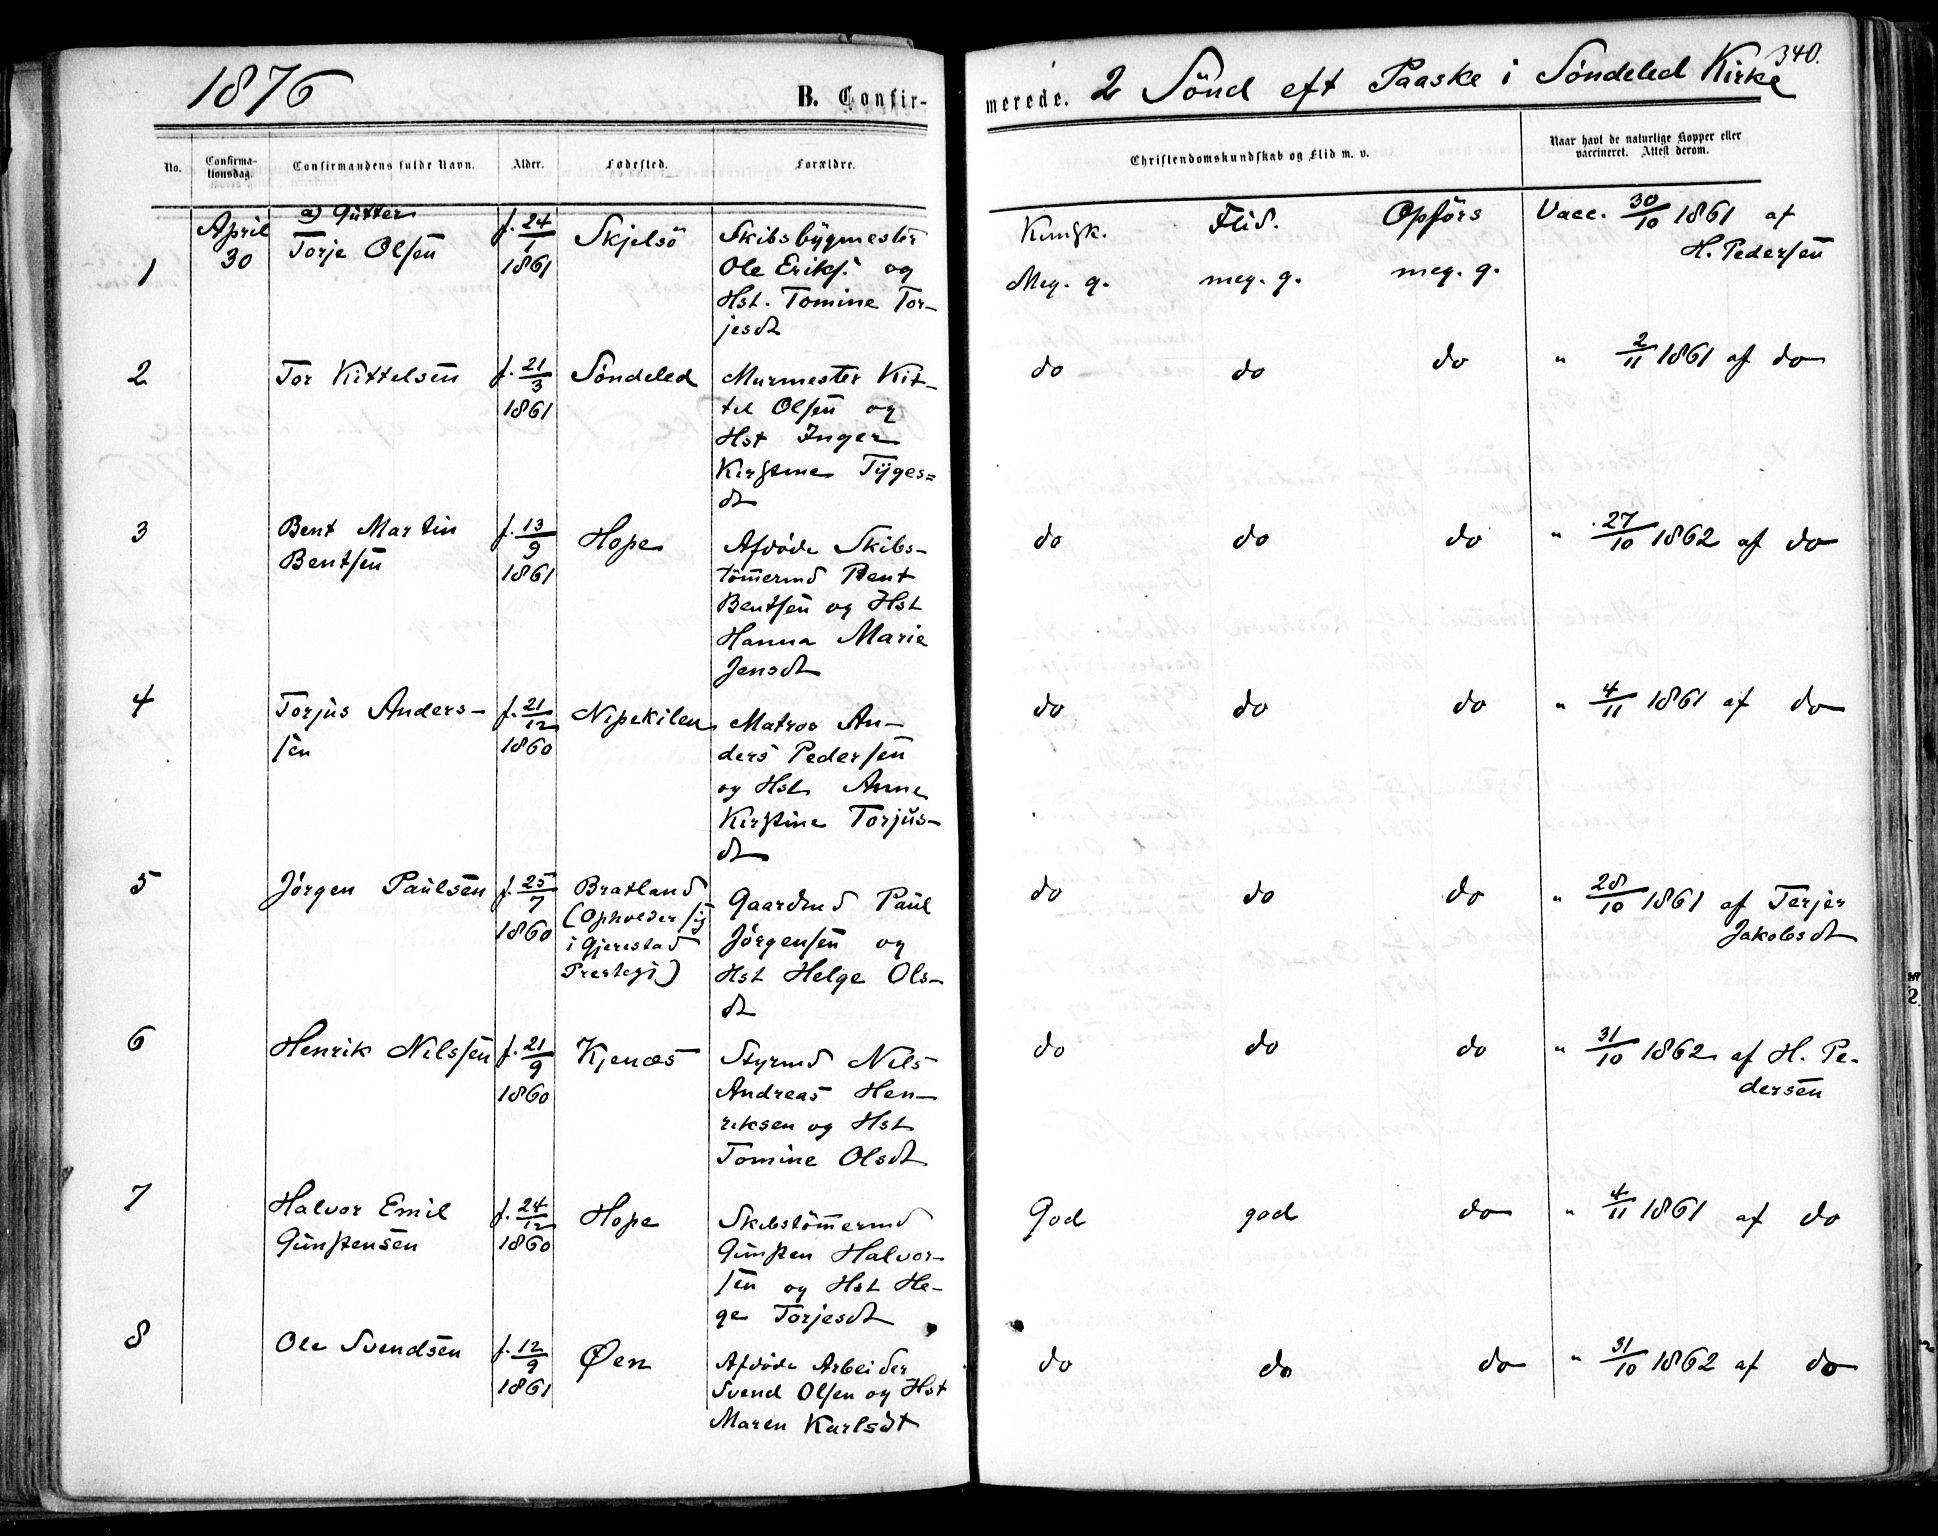 1876
B. Confir-
No.
Confirma-
tionsdag.
Confirmandens fulde Navn.
Alder.
Fødested.
Forældre.
a) Gutter
1
April
30
Torje Olsen
f. 24/1
1861
Skjelsö
Skibsbygmester
Ole Eriks. og
Hst. Tomine Tor-
jesdt
2
Tor Kittelsen
f. 21/3
1861
Söndeled
Murmester Kit-
tel Olsen og
Hst Inger
Kirstine Tyges=
dt
3
Bent Martin
Bentsen
f. 13/9
1861
Hope
Afdöde Skibs-
tömermd Bent
Bentsen og Hst
Hanna Marie
Jensdt
4
Torjus Anders-
sen
f. 21/12
1860
Nipekilen
Matros An-
ders Pedersen
og Hst Anne
Kirstine Torjus-
dt
5
Jörgen Paulsen
f. 25/7
1860
Bratland
(Opholder sig
i Gjerestad
Prestegj)
Gaardmd Paul
Jörgensen og
Hst Helge Ols-
dt
6
Henrik Nilssen
f. 21/9
1860
Kjenæs
Styrmd Nils
Andreas Hen-
riksen og Hst
Tomine Olsdt
7
Halvor Emil
Gunstensen
f. 24/12
1860
Hope
Skibstömermd
Gunsten Halvor-
sen og Hst He-
ge Torjesdt
8
Ole Svendsen
f. 12/9
1861
Øen
Afdöde Arbeider
Svend Olsen og Hst
Maren Karlsdt
merede. 2 Sönd eft Paaske i Söndeled Kirke
340.
Christendomskundskab og Flid m. v.
Naar havt de naturlige Kopper eller
vaccineret. Attest derom.
Kundsk. Flid. Opförs Vacc. 30/10 1861 af
H. Pedersen
Meg. g. meg. g. meg. g.
do do do " 2/11 1861 af do
do do do " 27/10 1862 af do
do do do " 4/11 1861 af do
do do do " 28/10 1861 af Terjer
Jakobsdt
do do do " 31/10 1862 af H. Pe-
dersen
God god do " 4/11 1861 af do
do do do " 31/10 1862 af do